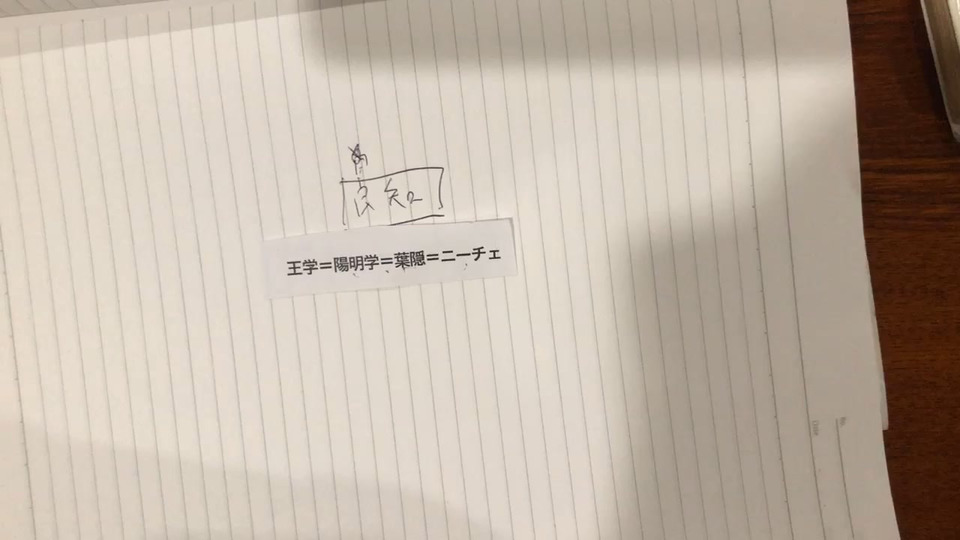 良知
王学=陽明学=葉隠=ニーチェ
No.
Date